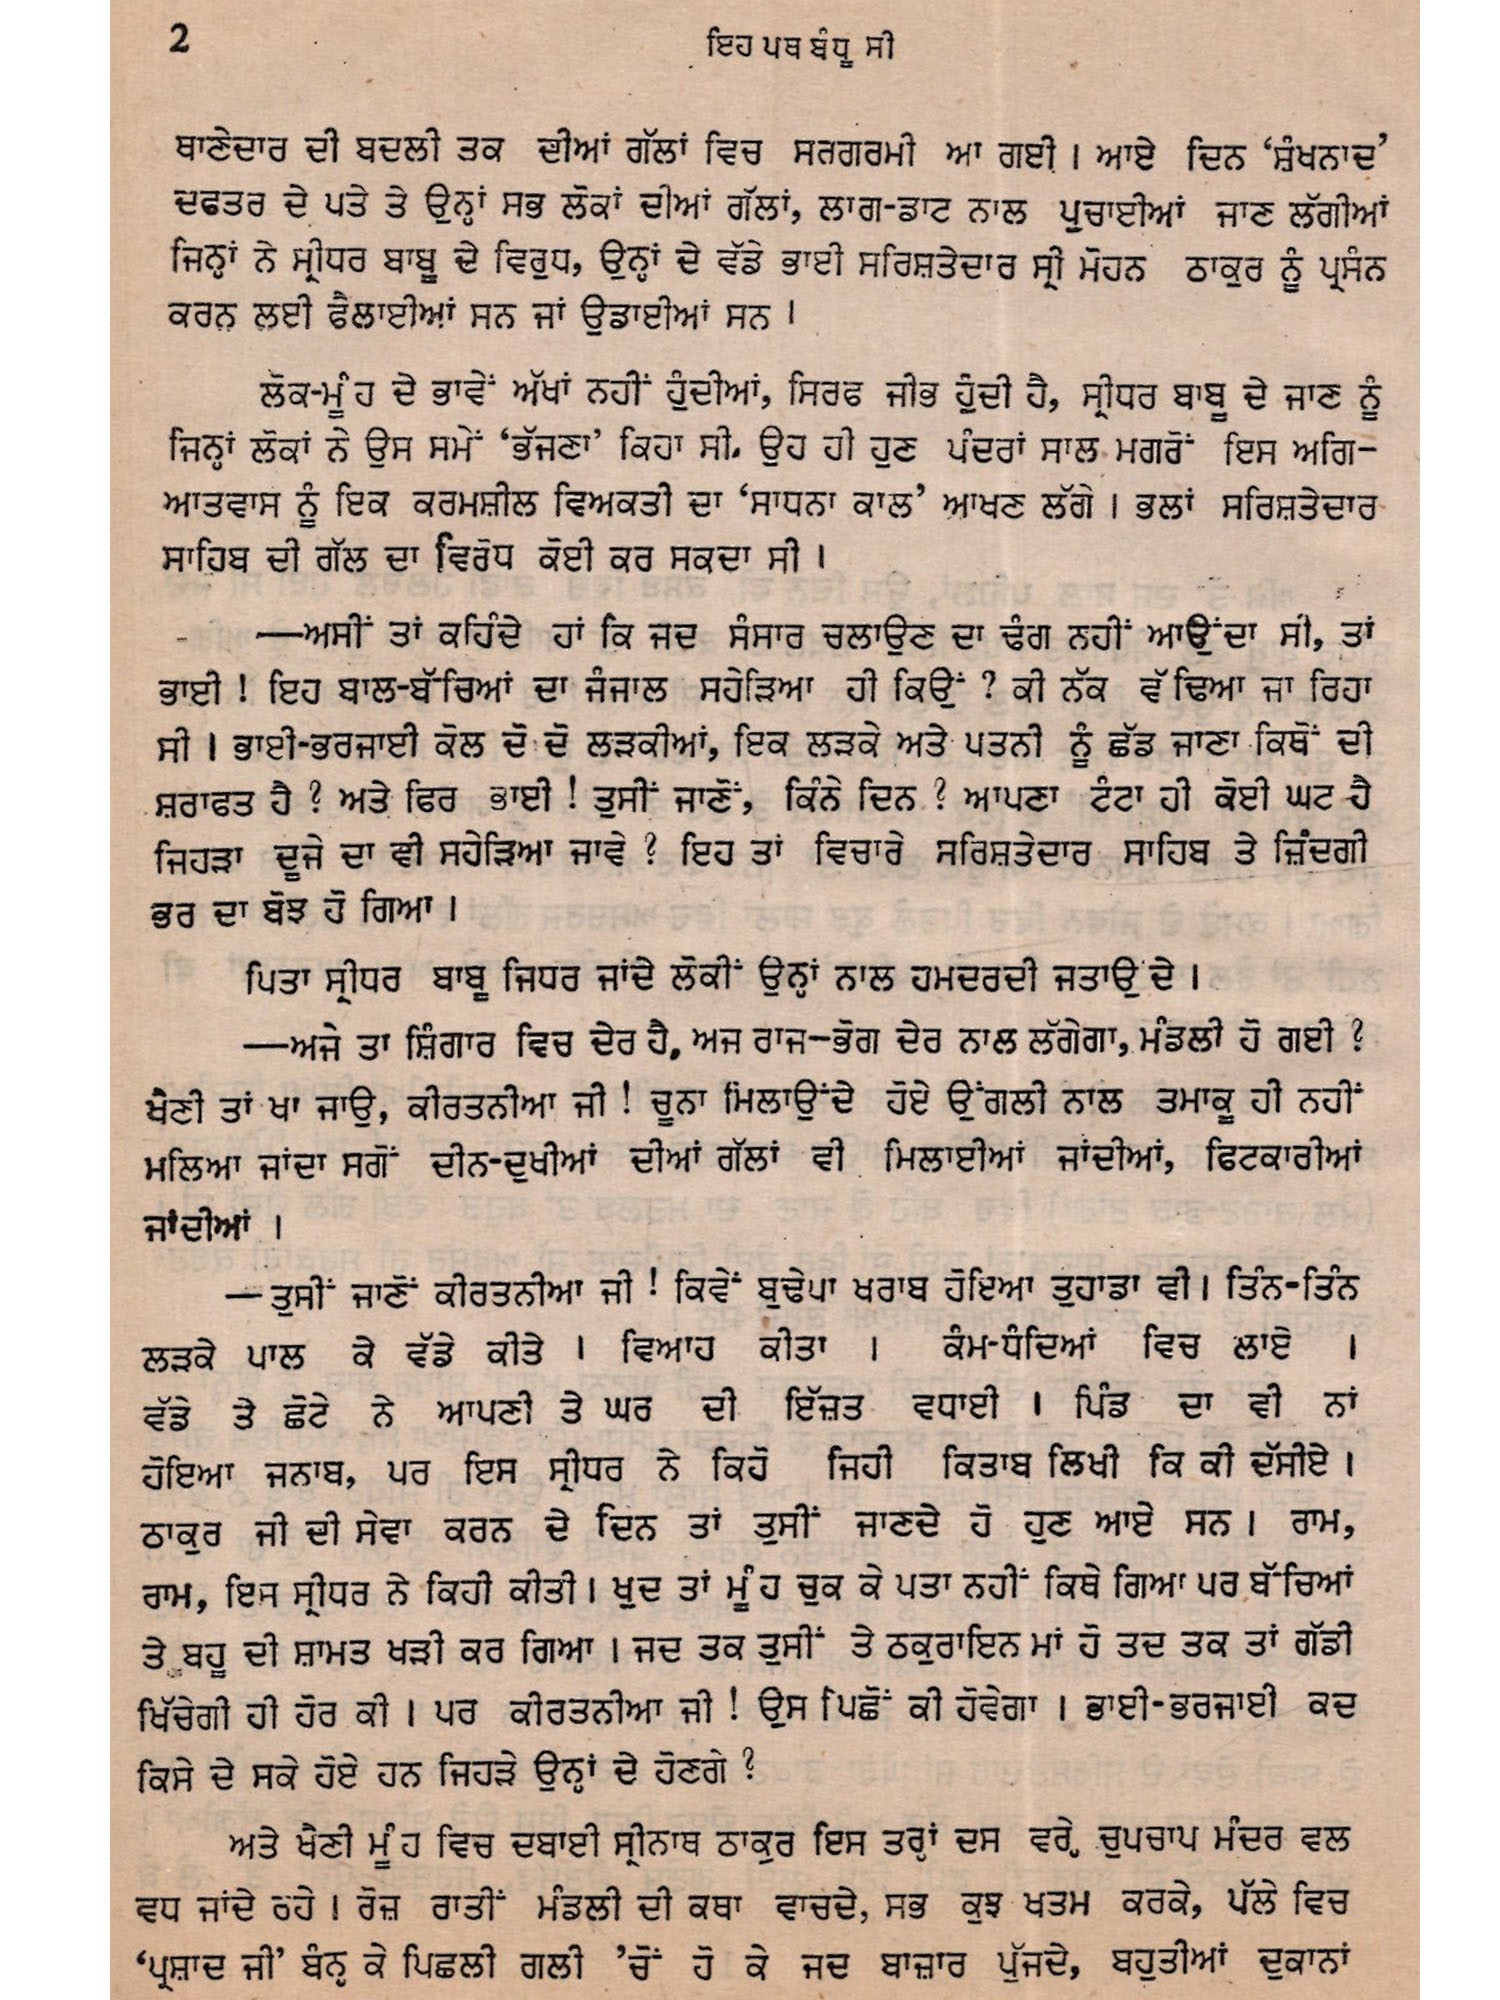 2
ਇਹ ਪਥ ਬੰਧੂ ਸੀ
ਥਾਣੇਦਾਰ ਦੀ ਬਦਲੀ ਤਕ ਦੀਆਂ ਗੱਲਾਂ ਵਿਚ ਸਰਗਰਮੀ ਆ ਗਈ । ਆਏ ਦਿਨ ‘ਸ਼ੰਖਨਾਦ’
ਦਫਤਰ ਦੇ ਪਤੇ ਤੇ ਉਨ੍ਹਾਂ ਸਭ ਲੋਕਾਂ ਦੀਆਂ ਗੱਲਾਂ, ਲਾਗ-ਡਾਟ ਨਾਲ ਪੁਚਾਈਆਂ ਜਾਣ ਲੱਗੀਆਂ
ਜਿਨ੍ਹਾਂ ਨੇ ਸ੍ਰੀਧਰ ਬਾਬੂ ਦੇ ਵਿਰੁਧ, ਉਨ੍ਹਾਂ ਦੇ ਵੱਡੇ ਭਾਈ ਸਰਿਸ਼ਤੇਦਾਰ ਸ੍ਰੀ ਮੋਹਨ ਠਾਕੁਰ ਨੂੰ ਪ੍ਰਸੰਨ
ਕਰਨ ਲਈ ਫੈਲਾਈਆਂ ਸਨ ਜਾਂ ਉਡਾਈਆਂ ਸਨ ।
ਲੋਕ-ਮੂੰਹ ਦੇ ਭਾਵੇਂ ਅੱਖਾਂ ਨਹੀਂ ਹੁੰਦੀਆਂ, ਸਿਰਫ ਜੀਭ ਹੁੰਦੀ ਹੈ, ਸ੍ਰੀਧਰ ਬਾਬੂ ਦੇ ਜਾਣ ਨੂੰ
ਜਿਨ੍ਹਾਂ ਲੋਕਾਂ ਨੇ ਉਸ ਸਮੇਂ ‘ਭੱਜਣਾ’ ਕਿਹਾ ਸੀ. ਉਹ ਹੀ ਹੁਣ ਪੰਦਰਾਂ ਸਾਲ ਮਗਰੋਂ ਇਸ ਅਗਿ-
ਆਤਵਾਸ ਨੂੰ ਇਕ ਕਰਮਸ਼ੀਲ ਵਿਅਕਤੀ ਦਾ ‘ਸਾਧਨਾ ਕਾਲ’ ਆਖਣ ਲੱਗੇ । ਭਲਾਂ ਸਰਿਸ਼ਤੇਦਾਰ
ਸਾਹਿਬ ਦੀ ਗੱਲ ਦਾ ਵਿਰੋਧ ਕੋਈ ਕਰ ਸਕਦਾ ਸੀ ।
—ਅਸੀਂ ਤਾਂ ਕਹਿੰਦੇ ਹਾਂ ਕਿ ਜਦ ਸੰਸਾਰ ਚਲਾਉਣ ਦਾ ਢੰਗ ਨਹੀਂ ਆਉਂਦਾ ਸੀ, ਤਾਂ
ਭਾਈ ! ਇਹ ਬਾਲ-ਬੱਚਿਆਂ ਦਾ ਜੰਜਾਲ ਸਹੇੜਿਆ ਹੀ ਕਿਉਂ ? ਕੀ ਨੱਕ ਵੱਢਿਆ ਜਾ ਰਿਹਾ
ਸੀ । ਭਾਈ-ਭਰਜਾਈ ਕੋਲ ਦੋ ਦੋ ਲੜਕੀਆਂ, ਇਕ ਲੜਕੇ ਅਤੇ ਪਤਨੀ ਨੂੰ ਛੱਡ ਜਾਣਾ ਕਿਥੋਂ ਦੀ
ਸ਼ਰਾਫਤ ਹੈ ? ਅਤੇ ਫਿਰ ਭਾਈ ! ਤੁਸੀਂ ਜਾਣੋਂ, ਕਿੰਨੇ ਦਿਨ ? ਆਪਣਾ ਟੰਟਾ ਹੀ ਕੋਈ ਘਟ ਹੈ
ਜਿਹੜਾ ਦੂਜੇ ਦਾ ਵੀ ਸਹੇੜਿਆ ਜਾਵੇ ? ਇਹ ਤਾਂ ਵਿਚਾਰੇ ਸਰਿਸ਼ਤੇਦਾਰ ਸਾਹਿਬ ਤੇ ਜ਼ਿੰਦਗੀ
ਭਰ ਦਾ ਬੋਝ ਹੋ ਗਿਆ ।
ਪਿਤਾ ਸ੍ਰੀਧਰ ਬਾਬੂ ਜਿਧਰ ਜਾਂਦੇ ਲੋਕੀਂ ਉਨ੍ਹਾਂ ਨਾਲ ਹਮਦਰਦੀ ਜਤਾਉਂਦੇ ।
—ਅਜੇ ਤਾ ਸ਼ਿੰਗਾਰ ਵਿਚ ਦੇਰ ਹੈ, ਅਜ ਰਾਜ-ਭੋਗ ਦੇਰ ਨਾਲ ਲੱਗੇਗਾ, ਮੰਡਲੀ ਹੋ ਗਈ ?
ਖੈਣੀ ਤਾਂ ਖਾ ਜਾਉ, ਕੀਰਤਨੀਆ ਜੀ ! ਚੂਨਾ ਮਿਲਾਉਂਦੇ ਹੋਏ ਉਂਗਲੀ ਨਾਲ ਤਮਾਕੂ ਹੀ ਨਹੀਂ
ਮਲਿਆ ਜਾਂਦਾ ਸਗੋਂ ਦੀਨ-ਦੁਖੀਆਂ ਦੀਆਂ ਗੱਲਾਂ ਵੀ ਮਿਲਾਈਆਂ ਜਾਂਦੀਆਂ, ਫਿਟਕਾਰੀਆਂ
ਜਾਂਦੀਆਂ ।
—ਤੁਸੀਂ ਜਾਣੋਂ ਕੀਰਤਨੀਆ ਜੀ ! ਕਿਵੇਂ ਬੁਢੇਪਾ ਖਰਾਬ ਹੋਇਆ ਤੁਹਾਡਾ ਵੀ । ਤਿੰਨ-ਤਿੰਨ
ਲੜਕੇ ਪਾਲ ਕੇ ਵੱਡੇ ਕੀਤੇ । ਵਿਆਹ ਕੀਤਾ । ਕੰਮ-ਧੰਦਿਆਂ ਵਿਚ ਲਾਏ ।
ਵੱਡੇ ਤੇ ਛੋਟੇ ਨੇ ਆਪਣੀ ਤੇ ਘਰ ਦੀ ਇੱਜ਼ਤ ਵਧਾਈ । ਪਿੰਡ ਦਾ ਵੀ ਨਾਂ
ਹੋਇਆ ਜਨਾਬ, ਪਰ ਇਸ ਸ੍ਰੀਧਰ ਨੇ ਕਿਹੋ ਜਿਹੀ ਕਿਤਾਬ ਲਿਖੀ ਕਿ ਕੀ ਦੱਸੀਏ ।
ਠਾਕੁਰ ਜੀ ਦੀ ਸੇਵਾ ਕਰਨ ਦੇ ਦਿਨ ਤਾਂ ਤੁਸੀਂ ਜਾਣਦੇ ਹੋ ਹੁਣ ਆਏ ਸਨ । ਰਾਮ,
ਰਾਮ, ਇਸ ਸ੍ਰੀਧਰ ਨੇ ਕਿਹੀ ਕੀਤੀ । ਖੁਦ ਤਾਂ ਮੂੰਹ ਚੁਕ ਕੇ ਪਤਾ ਨਹੀਂ ਕਿਥੇ ਗਿਆ ਪਰ ਬੱਚਿਆਂ
ਤੇ ਬਹੂ ਦੀ ਸ਼ਾਮਤ ਖੜੀ ਕਰ ਗਿਆ । ਜਦ ਤਕ ਤੁਸੀਂ ਤੇ ਠਕੁਰਾਇਨ ਮਾਂ ਹੋ ਤਦ ਤਕ ਤਾਂ ਗੱਡੀ
ਖਿੱਚੇਗੀ ਹੀ ਹੋਰ ਕੀ । ਪਰ ਕੀਰਤਨੀਆ ਜੀ ! ਉਸ ਪਿਛੋਂ ਕੀ ਹੋਵੇਗਾ । ਭਾਈ-ਭਰਜਾਈ ਕਦ
ਕਿਸੇ ਦੇ ਸਕੇ ਹੋਏ ਹਨ ਜਿਹੜੇ ਉਨ੍ਹਾਂ ਦੇ ਹੋਣਗੇ ?
ਅਤੇ ਖੈਣੀ ਮੂੰਹ ਵਿਚ ਦਬਾਈ ਸ੍ਰੀਨਾਥ ਠਾਕੁਰ ਇਸ ਤਰ੍ਹਾਂ ਦਸ ਵਰ੍ਹੇ ਚੁਪਚਾਪ ਮੰਦਰ ਵਲ
ਵਧ ਜਾਂਦੇ ਰਹੇ । ਰੋਜ਼ ਰਾਤੀਂ ਮੰਡਲੀ ਦੀ ਕਥਾ ਵਾਚਦੇ, ਸਭ ਕੁਝ ਖਤਮ ਕਰਕੇ, ਪੱਲੇ ਵਿਚ
‘ਪ੍ਰਸ਼ਾਦ ਜੀ’ ਬੰਨ੍ਹ ਕੇ ਪਿਛਲੀ ਗਲੀ ’ਚੋਂ ਹੋ ਕੇ ਜਦ ਬਾਜ਼ਾਰ ਪੁੱਜਦੇ, ਬਹੁਤੀਆਂ ਦੁਕਾਨਾਂ